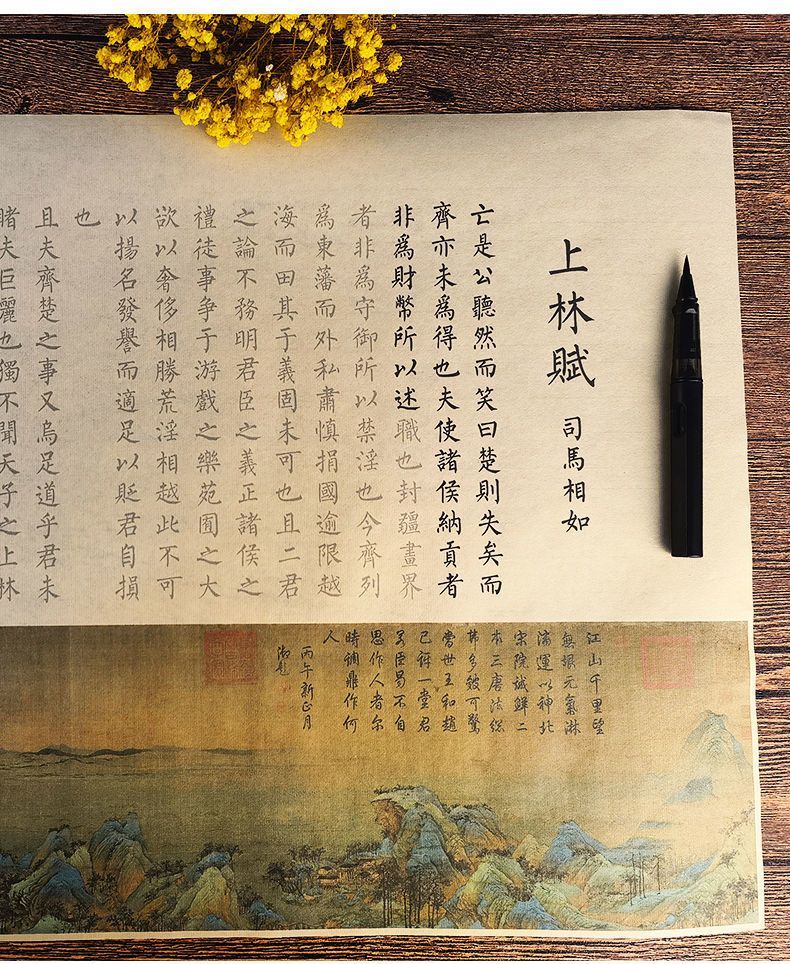 上林賦
司馬相如
亡是公聽然而笑曰楚則失矣而
齊亦未爲得也夫使諸侯納貢者
非爲財幣所以述職也封疆畫界
者非爲守御所以禁淫也今齊列
爲東藩而外私肅慎捐國逾限越
海而田其于義固未可也且二君
之論不務明君臣之義正諸侯之
禮徒事爭于游戲之樂苑囿之大
欲以奢侈相勝荒淫相越此不可
以揚名發譽而適足以貶君自損
也
且夫齊楚之事又烏足道乎君未
睹夫巨麗也獨不聞天子之上林
江山千里望
無垠元氣淋
漓運以神北
宋院誠鮮二
本三唐法總
弗多皴可驚
當世王和趙
已訝一堂君
若臣曷不自
思作人者尔
時調鼎作何
人
丙午新正月
御題